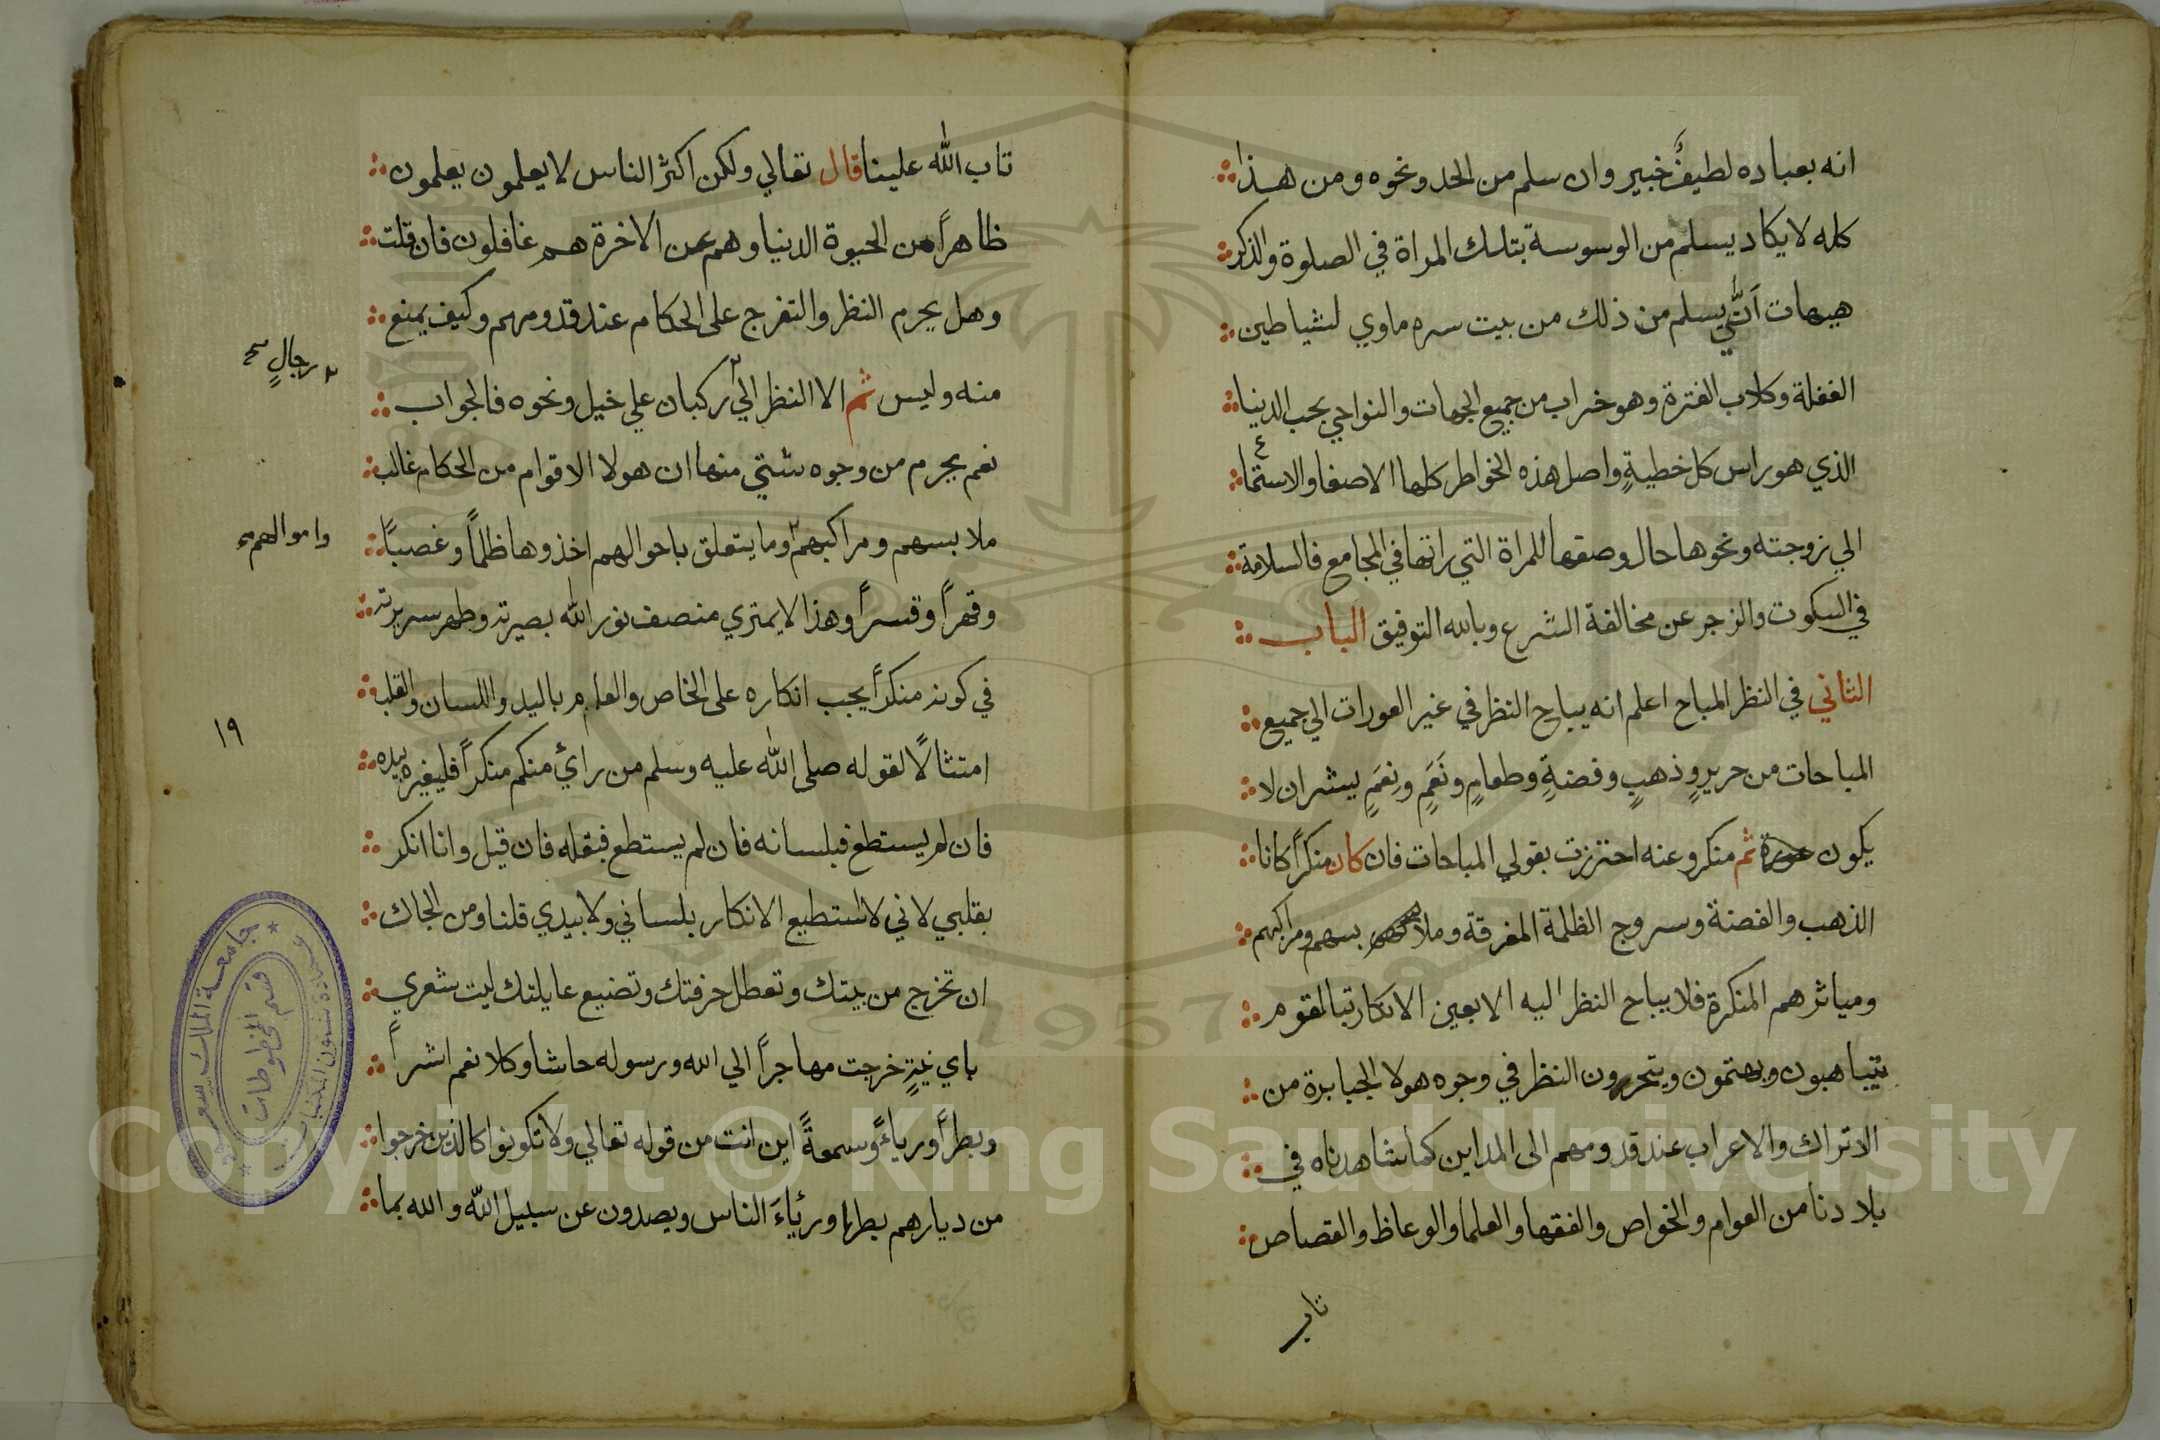 انه بعباده لطيفٌ خبير وان سلم من الحد ونحوه ومن هذا
كله لا يكاد يسلم من الوسوسة بتلك المراة في الصلوة والذكر
هيهات اَنّٰي يسلم من ذلك من بيت سره ماوي لشياطين
الغفلة وكلاب الفترة وهو خراب من جميع الجهات والنواحي بحب الدنيا
الذي هو راس كل خطيةٍ واصل هذه الخواطر كلها الاصغا والاستماع
الي زوجته ونحوها حال وصفها للمراة التي راتها في المجامع فالسلامة
في السكوت والزجر عن مخالفة الشرع وبالله التوفيق الباب
الثاني في النظر المباح اعلم انه يباح النظر في غير العورات الي جميع
المباحات من حريرٍ وذهبٍ وفضةٍ وطعامٍ ونَعَمٍ ونِعَمٍ بشر ان لا
يكون ثم منكر وعنه احترزت بقولي المباحات فان كان منكراً كانا
الذهب والفضة وسروج الظلمة المغرقة وملا بسهم ومراكبهم
ومياثرهم المنكرة فلا يباح النظر اليه الا بعين الانكار تبا لقوم
يتباهون ويهتمون ويتحرون النظر في وجوه هولا الجبابرة من
الاتراك والاعراب عند قدومهم الى المداين كما شاهدناه في
بلادنا من العوام والخواص والفقها والعلما والوعاظ والقصاص
تاب
تاب الله علينا قال تعالي ولكن اكثر الناس لا يعلمون يعلمون
ظاهراً من الحيوة الدنيا وهم عن الاخرة هم غافلون فان قلت
وهل يحرم النظر والتفرج على الحكام عند قدومهم وكيف يمنع
منه وليس ثم الا النظر الي ركبان علي خيل ونحوه فالجواب
رجالٍ صح
نعم يحرم من وجوه شتي منها ان هولا الاقوام من الحكام غالب
ملابسهم ومراكبهم وما يتعلق باحوالهم اخذوها ظلماً وغصباً
واموالهم
وقهراً وقسراً وهذا لا يمتري منصف نور الله بصيرته وطهر سريرته
في كونه منكراً يجب انكاره على الخاص والعام باليد واللسان والقلب
١٩
امتثالاً لقوله صلى الله عليه وسلم من رائ منكم منكراً فليغيره بيده
فان لم يستطع فبلسانه فان لم يستطع فبقلبه فان قيل وانا انكر
بقلبي لاني لا استطيع الانكار بلساني ولا بيدي قلنا ومن الجاك
ان تخرج من بيتك وتعطل حرفتك وتضيع عايلتك ليت شعري
باي نيةٍ خرجت مهاجراً الي الله ورسوله حاشا وكلا نعم اشراً
وبطراً ورياءً وسمعةً اين انت من قوله تعالي ولا تكونوا كالذين خرجوا
من ديارهم بطرا ورئاءَ الناس ويصدون عن سبيل الله والله بما
جامعة الملك سعود
عمادة شئون المكتبات
قسم المخطوطات
1957
Copyright © King Saud University